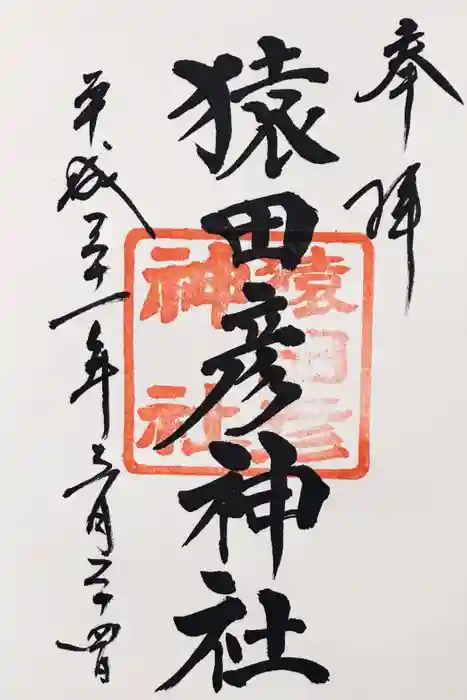 奉拝
猿田彦神社
猿田彦
神社
平成三十一年三月二十四日